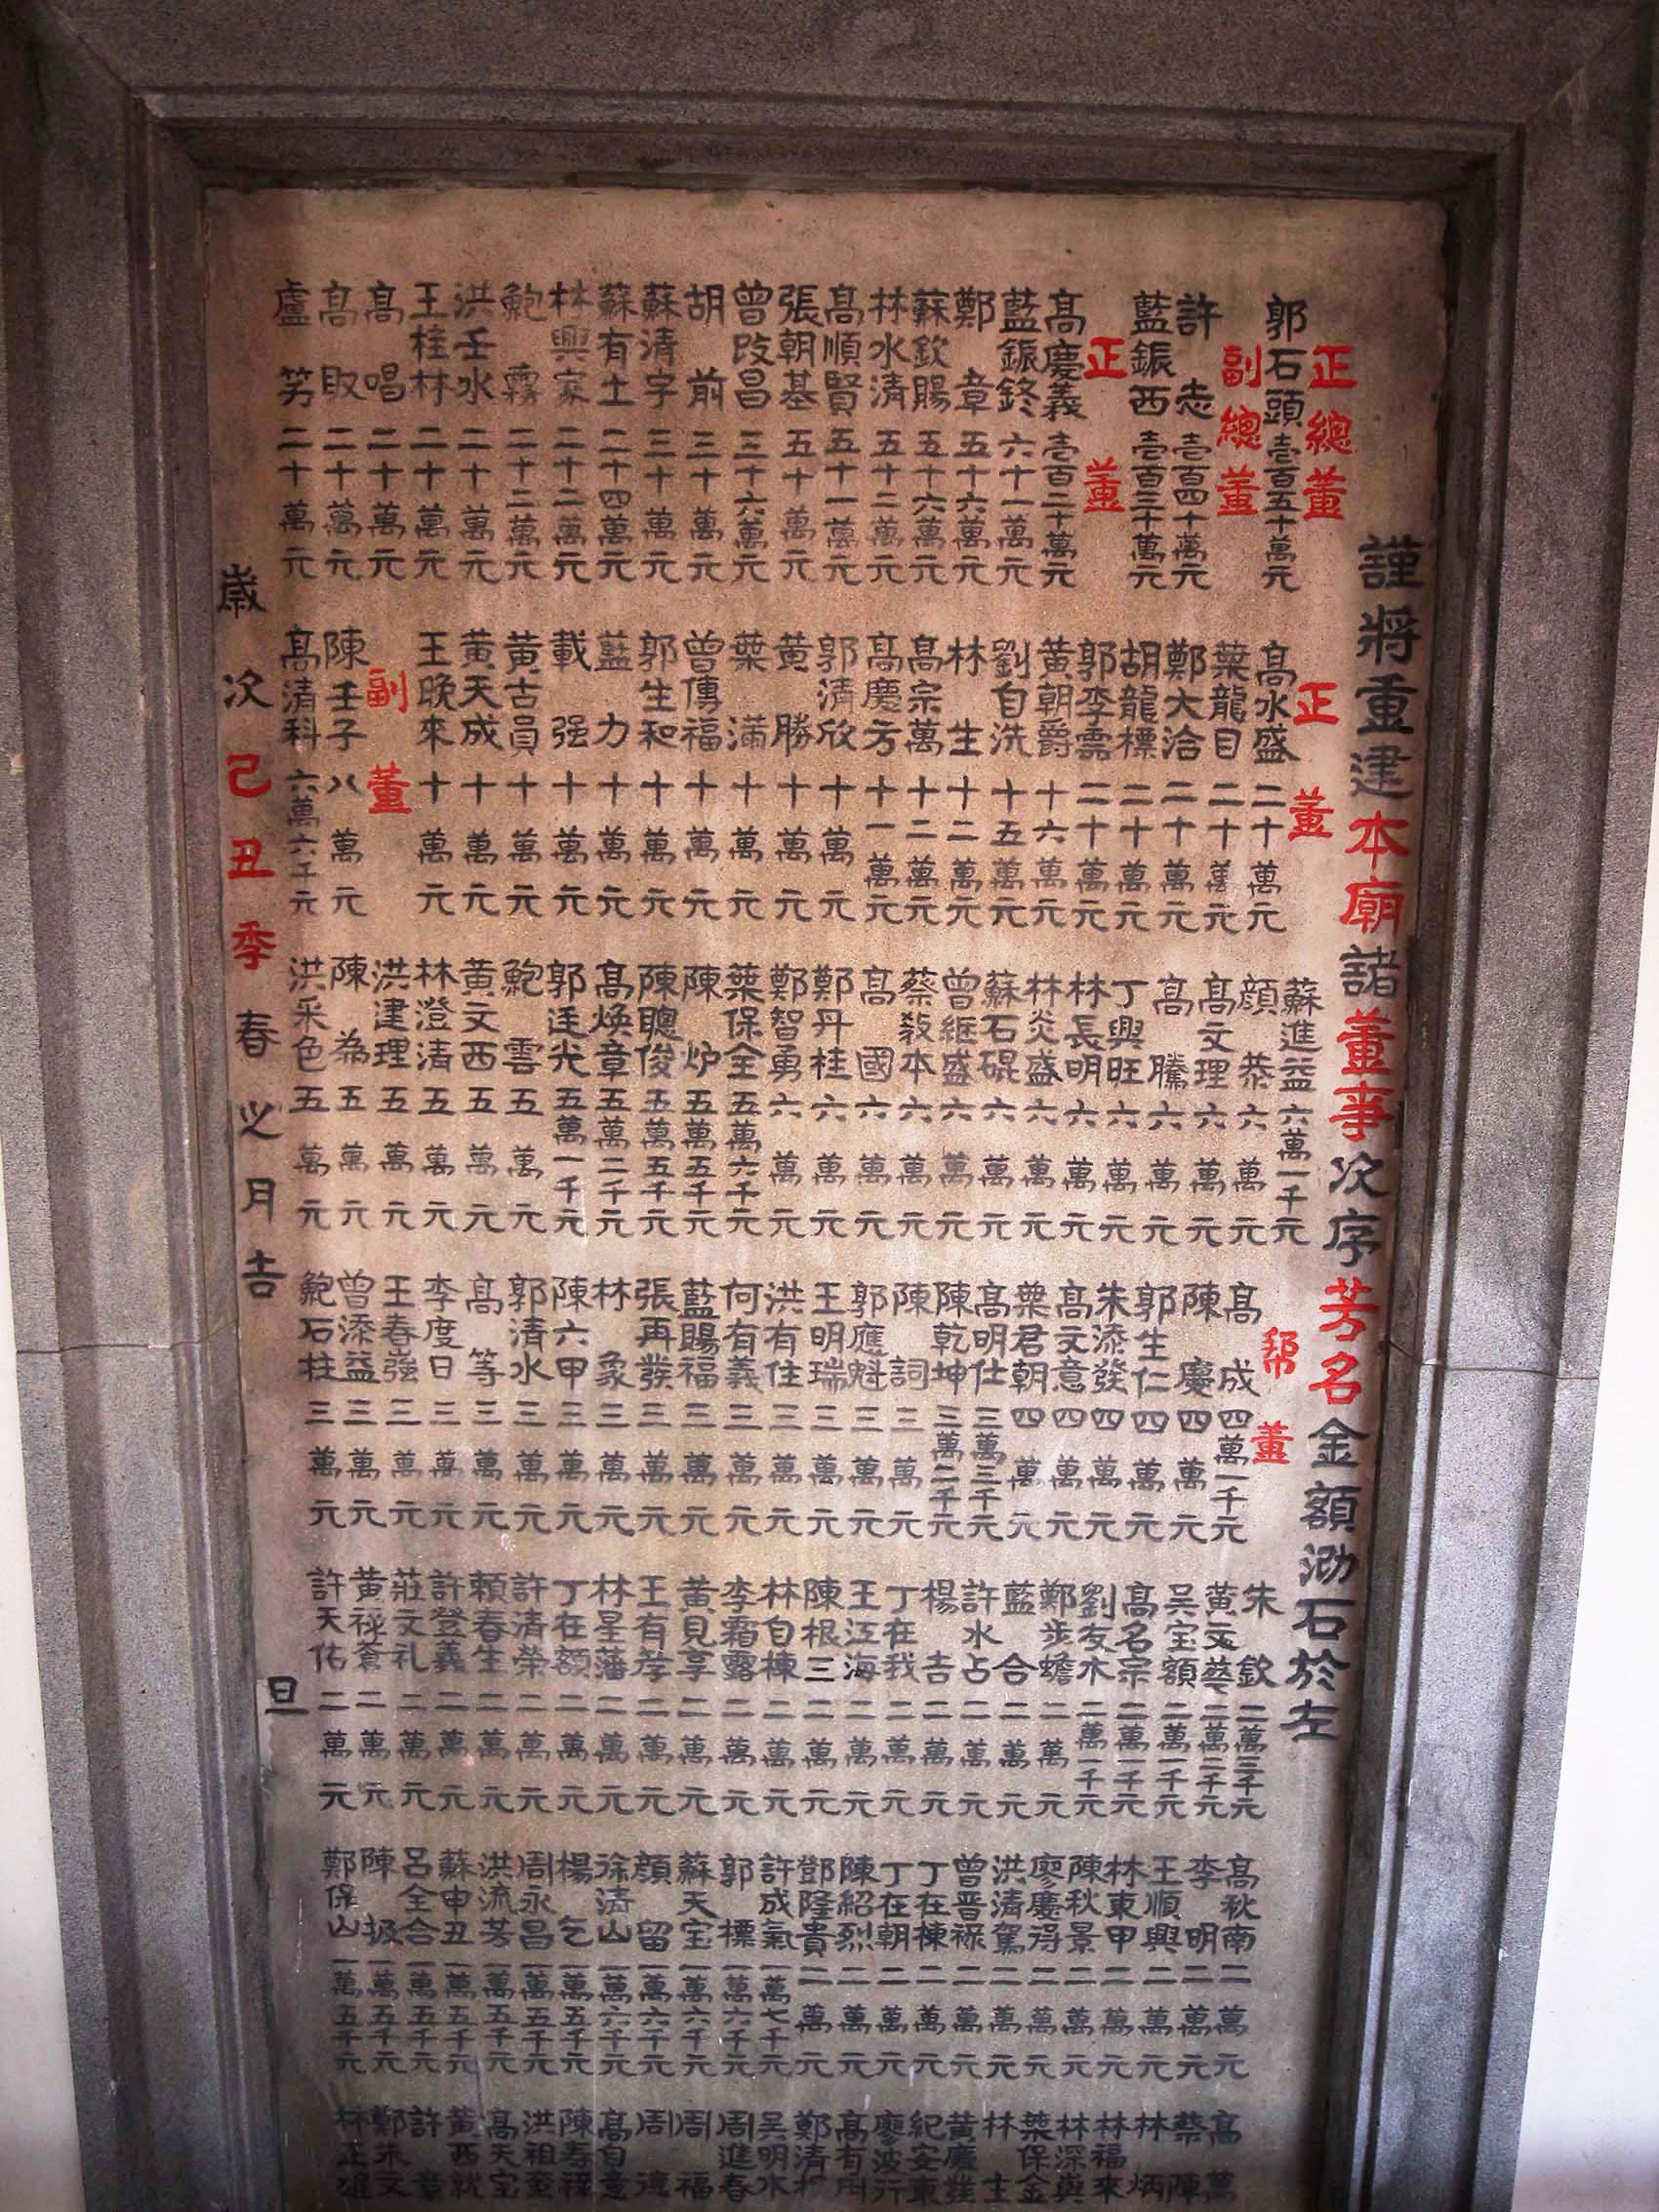 謹將重建本廟諸董事次序芳名金額泐石於左
正總董
郭石頭 壱百五十萬元
副總董
許志 壱百四十萬元
藍鋠西 壱百三十萬元
正董
高慶義 壱百二十萬元
藍鋠終 六十一萬元
鄭章 五十六萬元
蘇欽賜 五十六萬元
林水清 五十二萬元
高順賢 五十一萬元
張朝基 五十萬元
曾昌 三十六萬元
胡前 三十萬元
蘇清字 三十萬元
蘇有土 二十四萬元
林興家 二十二萬元
鮑霧 二十二萬元
洪壬水 二十萬元
王桂林 二十萬元
高唱 二十萬元
高取 二十萬元
盧笑 二十萬元
正董
高水盛 二十萬元
葉龍目 二十萬元
鄭大洽 二十萬元
胡龍標 二十萬元
郭李雲 二十萬元
黃朝爵 十六萬元
劉自洗 十五萬元
林生 十二萬元
高宗萬 十二萬元
高慶方 十一萬元
郭清欣 十萬元
黃勝 十萬元
葉滿 十萬元
曾傳福 十萬元
郭生和 十萬元
藍力 十萬元
載强 十萬元
黃古員 十萬元
黃天成 十萬元
王晚來 十萬元
副董
陳壬子 八萬元
高清科 六萬六千元
蘇進益 六萬一千元
顏恭 六萬元
高文理 六萬元
高騰 六萬元
丁興旺 六萬元
林長明 六萬元
林炎盛 六萬元
蘇石硍 六萬元
曾継盛 六萬元
蔡教本 六萬元
高國 六萬元
鄭丹桂 六萬元
鄭智勇 六萬元
葉保全 五萬六千元
陳炉 五萬五千元
陳聰俊 五萬五千元
高煥章 五萬二千元
郭廷光 五萬一千元
鮑雲 五萬元
黃文西 五萬元
林澄清 五萬元
洪建理 五萬元
陳為 五萬元
洪采色 五萬元
幇董
高成 四萬一千元
陳慶 四萬元
郭生仁 四萬元
朱添發 四萬元
高文意 四萬元
葉君朝 四萬元
高明仕 三萬三千元
陳乾坤 三萬二千元
陳詞 三萬元
郭應魁 三萬元
王明瑞 三萬元
洪有住 三萬元
何有義 三萬元
藍賜福 三萬元
張再發 三萬元
林象 三萬元
陳六甲 三萬元
郭清水 三萬元
高等 三萬元
李度日 三萬元
王春強 三萬元
曾添益 三萬元
鮑石柱 三萬元
朱欽 二萬三千元
黃文 二萬二千元
吳宝額 二萬一千元
高名宗 二萬一千元
劉友木 二萬一千元
鄭步蟾 二萬元
藍合 二萬元
許水占 二萬元
楊吉 二萬元
丁在我 二萬元
王江海 二萬元
陳根三 二萬元
林自棟 二萬元
李霜露 二萬元
黃見享 二萬元
王有 二萬元
林星藩 二萬元
丁在額 二萬元
許清榮 二萬元
賴春生 二萬元
許登義 二萬元
莊文礼 二萬元
黃祿蒼 二萬元
許天佑 二萬元
高秋南 二萬元
李明 二萬元
王順興 二萬元
林東甲 二萬元
陳秋景 二萬元
廖慶得 二萬元
洪清駕 二萬元
曾晋祿 二萬元
丁在棟 二萬元
丁在朝 二萬元
陳紹烈 二萬元
鄧隆貴 二萬元
許成氣 一萬七千元
郭標 一萬六千元
蘇天宝 一萬六千元
顏留 一萬六千元
徐濤山 一萬六千元
楊乞 一萬五千元
周永昌 一萬五千元
洪流芳 一萬五千元
蘇申丑 一萬五千元
呂全合 一萬五千元
陳圾 一萬五千元
鄭保山 一萬五千元
高萬
蔡陣
林炳
林福來
林深與
葉保金
林生
黃慶
紀安東
廖波行
高有用
鄭清
吳明水
周進春
周福
周德
高自意
陳寿祿
洪祖
高天宝
黃西就
許章
鄭朱文
林正雄
歲次己丑季春之月吉旦